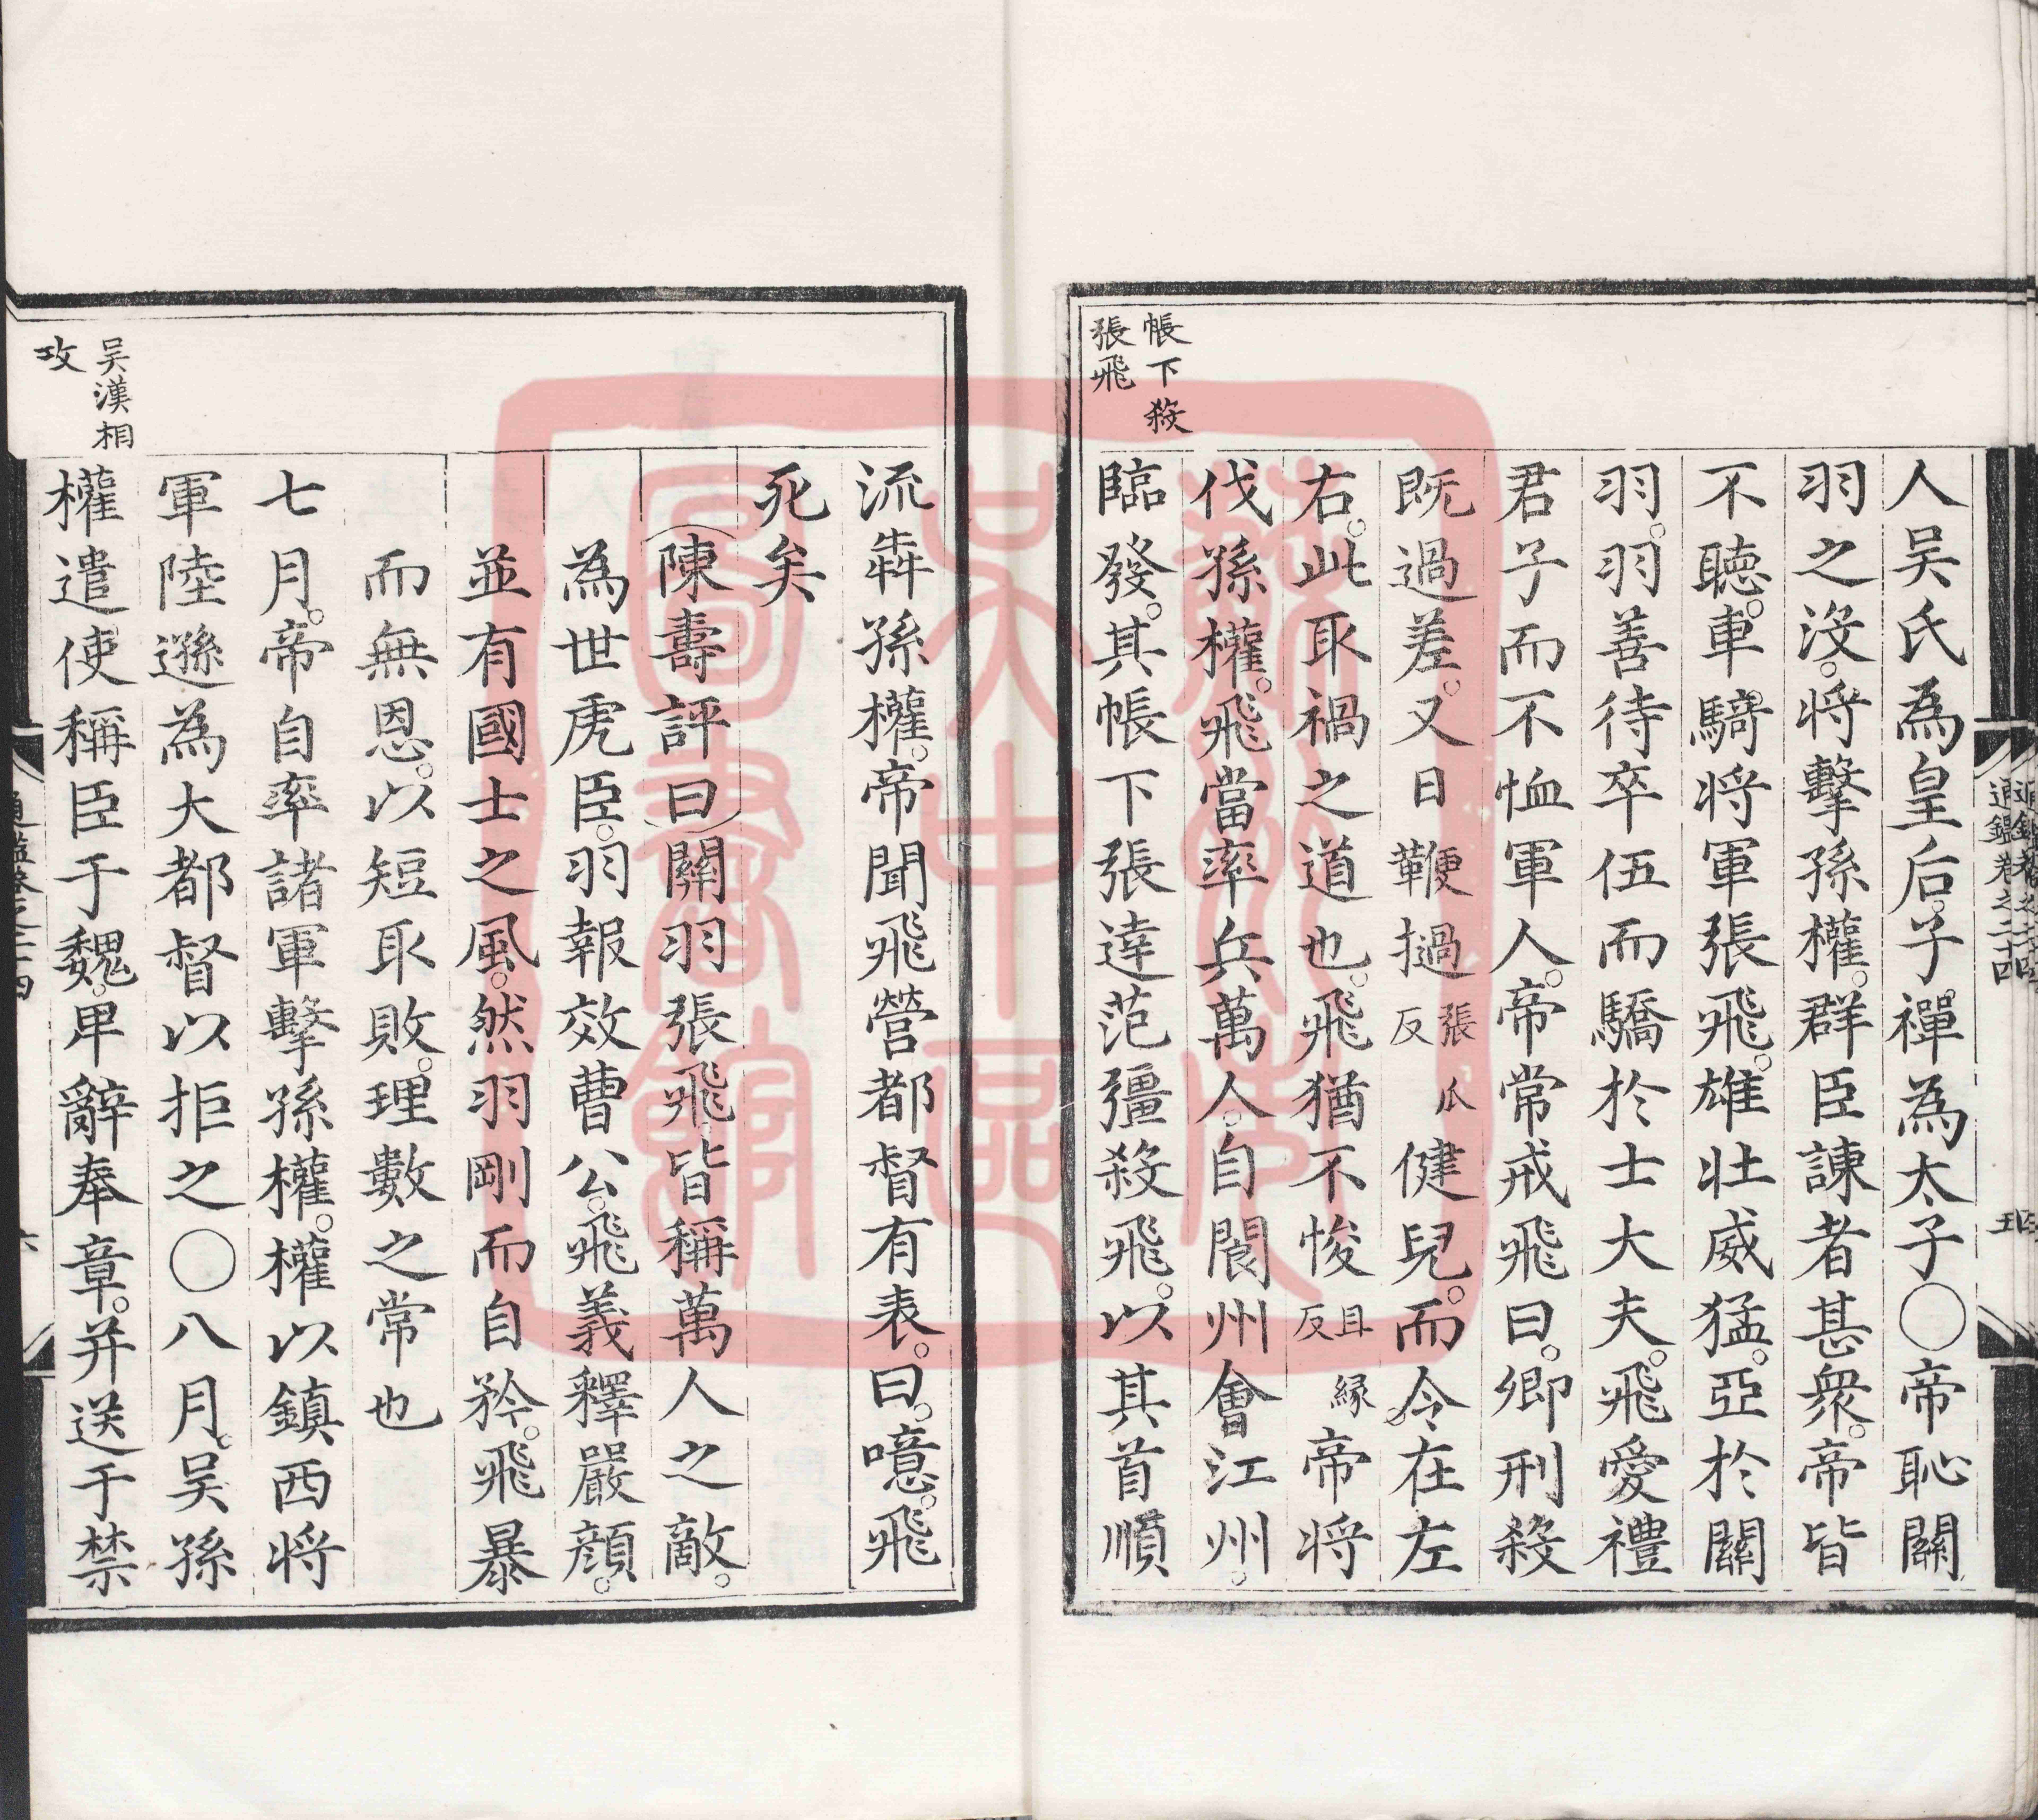 人吴氏為皇后。子禪為太子〇帝恥關
羽之沒。將擊孫權。群臣諫者甚衆。帝皆
不聴。車騎將軍張飛。雄壯威猛。亞於關
羽。羽善待卒伍而驕於士大夫。飛愛禮
君子而不恤軍人。帝常戒飛曰。卿刑殺
既過差。又日鞭撾張瓜反健兒。而令在左
右。此取禍之道也。飛猶不悛且緣反。帝將
伐孫權。飛當率兵萬人。自閬州會江州。
帳下殺
張飛
臨發。其帳下張達范彊殺飛。以其首順
通鑑卷之二十四
五
流犇孫權。帝聞飛營都督有表。曰。噫。飛
死矣
(陳壽評曰)關羽張飛皆稱萬人之敵。
為世虎臣。羽報效曹公。飛義釋嚴顔。
並有國士之風。然羽剛而自矜。飛暴
而無恩。以短取敗。理數之常也
七月。帝自率諸軍擊孫權。權以鎮西將
軍陸遜為大都督以拒之〇八月。吴孫
吴漢相
攻
權遣使稱臣于魏。卑辭奉章。并送于禁
六
蘇州市
吴中區
圖書館